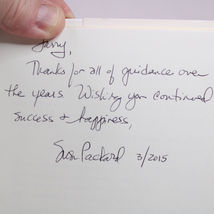 Jerry,
Thanks for all of guidance over
the years. Wishing you continued
success & happiness,
Susan Packard 3/2015